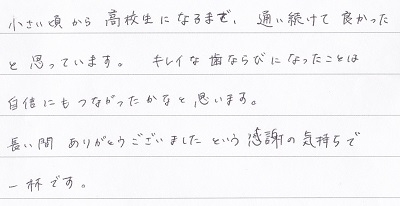 小さい頃から高校生になるまで、通い続けて良かった
と思っています。キレイな歯ならびになったことは
自信にもつながったかなと思います。
長い間ありがとうございましたという感謝の気持ちで
一杯です。